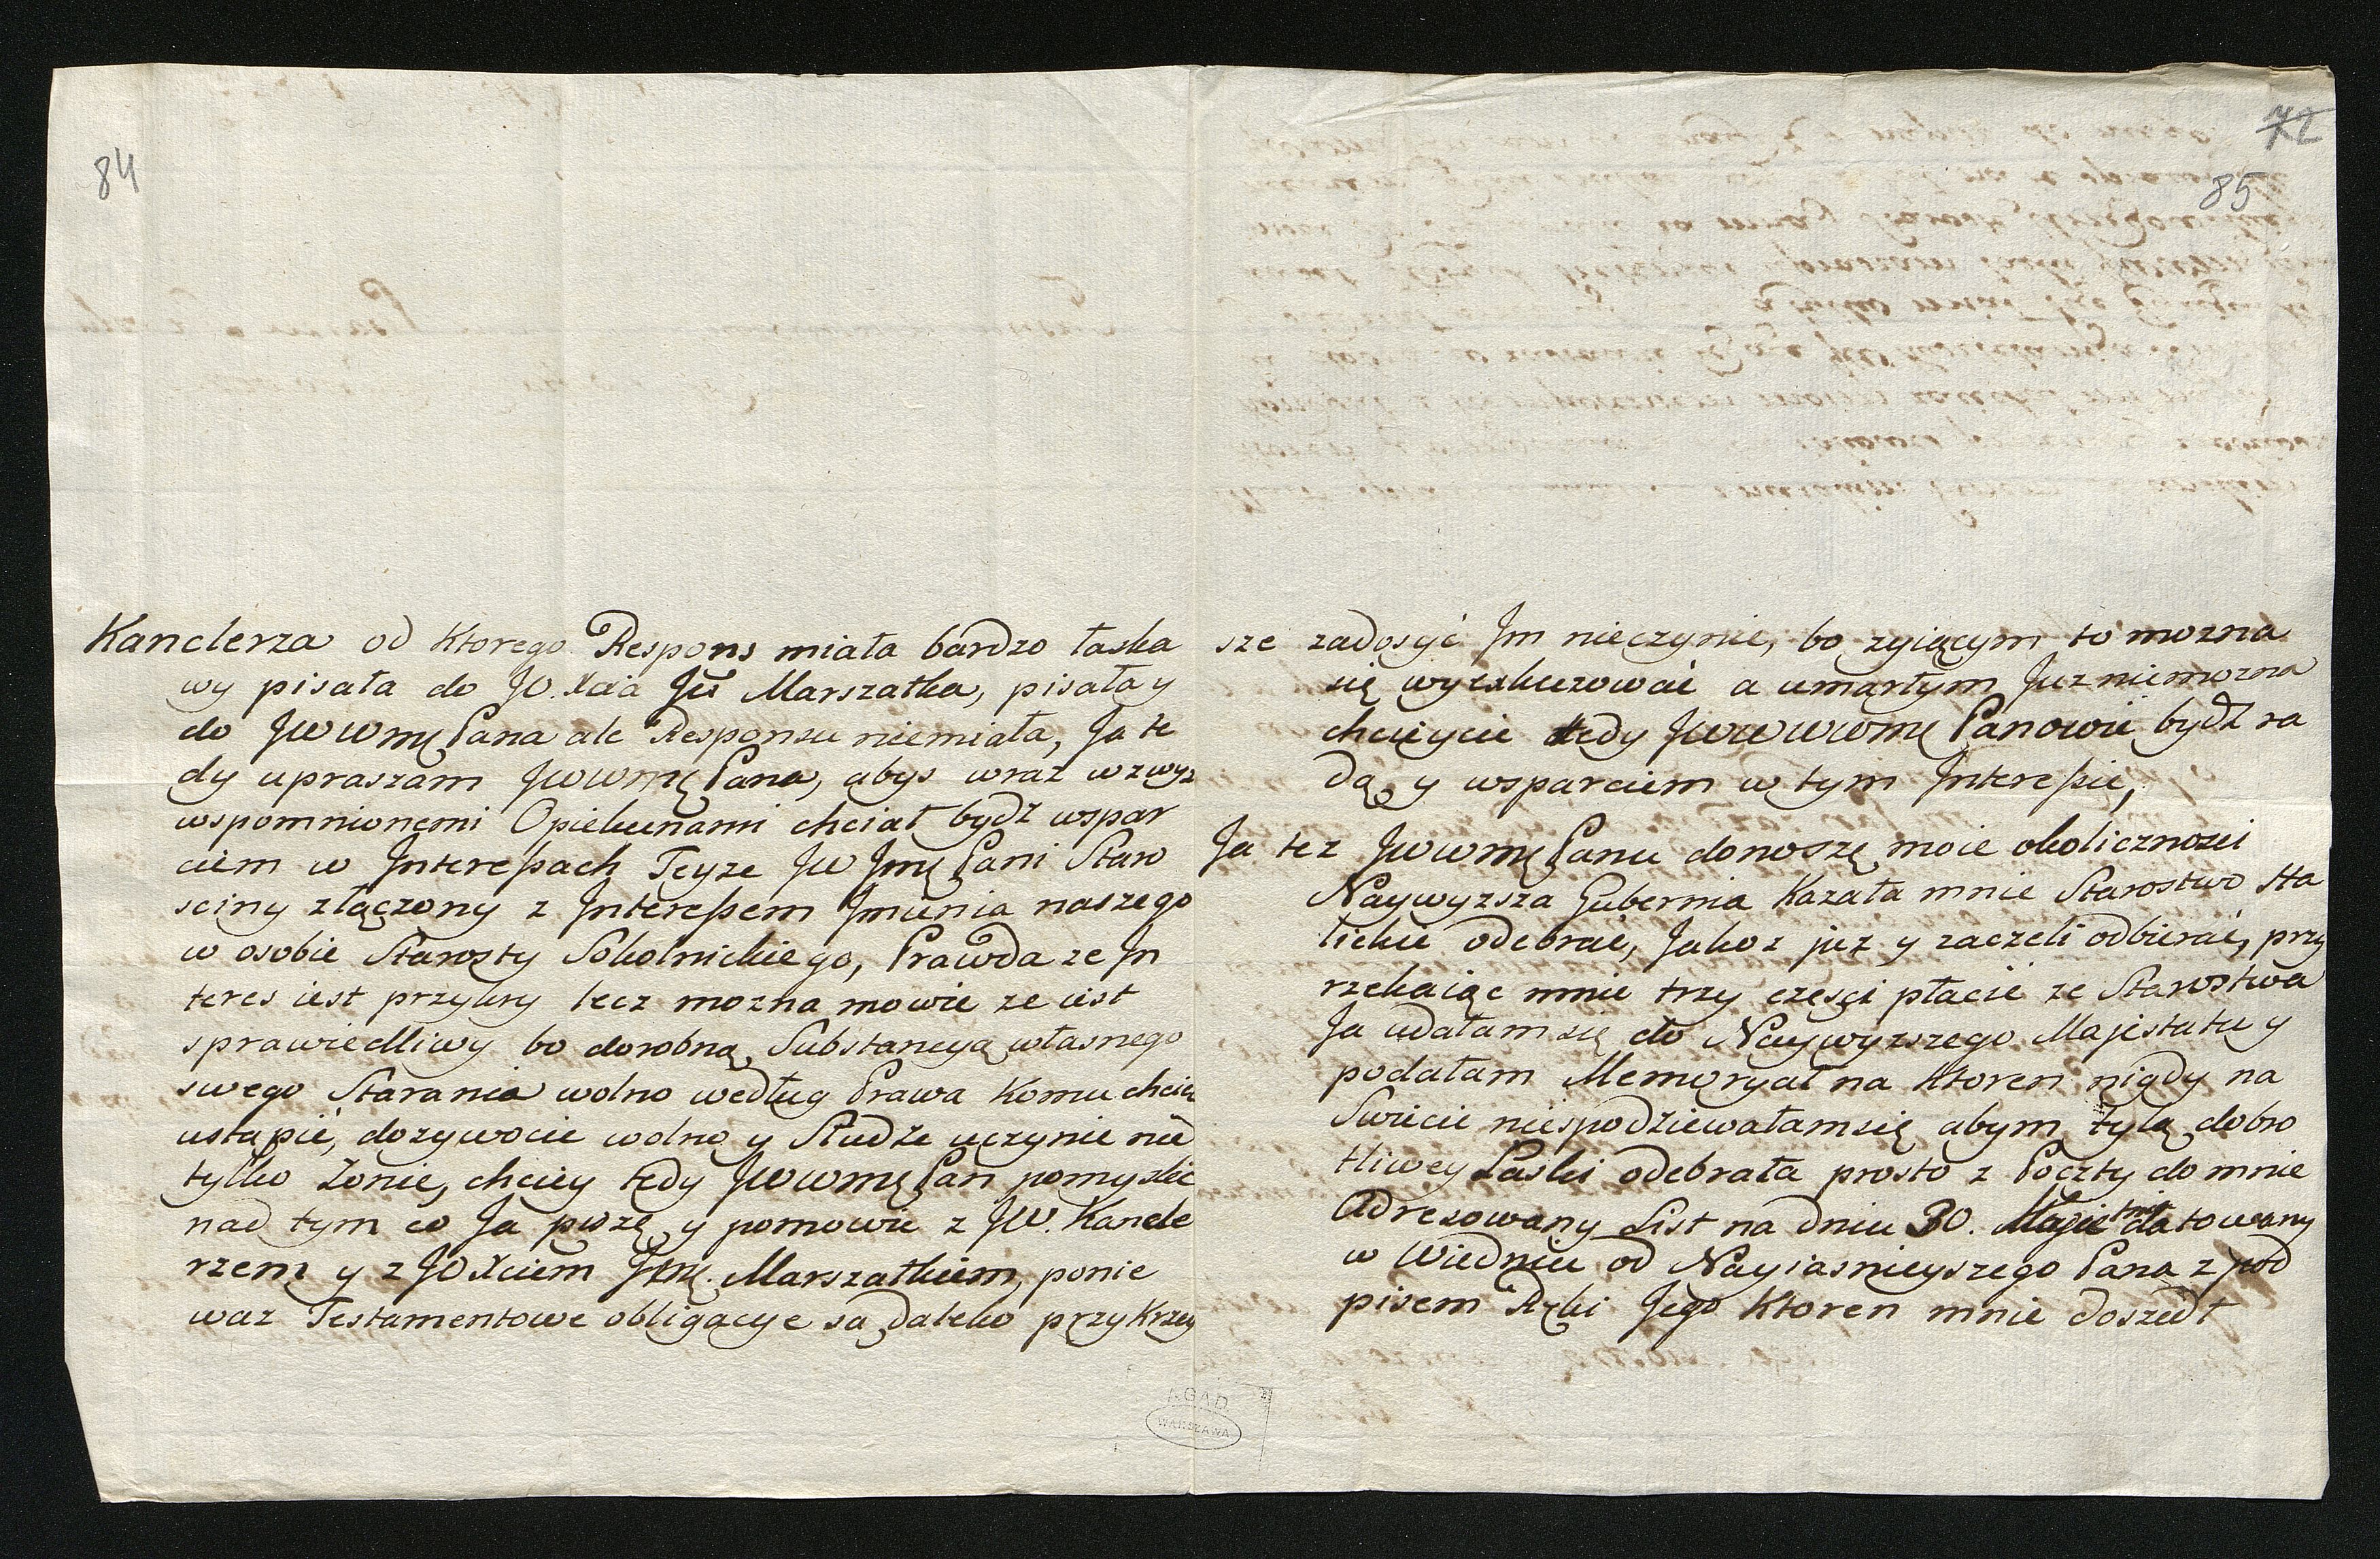 84
Kanclerza od Ktorego Respons miała bardzo łaska
wy pisała do JO. Xcia Jm̃ Marszałka, pisała y
do JWWmę Pana ale Responsu niemiała, Ja te
dy upraszam JWWmę Pana, abys wraz wzwyz
wspomnionemi Opiekunami chciał bydź wspar
ciem w Interessach Teyze JW Jmę Pani Staro
sciny złączony z Interessem Jmienia naszego
w osobie Starosty Sokolnickiego, Prawda ze In
teres iest przykry lecz mozna mowic ze iest
sprawiedliwy bo dorobną Substancyą własnego
swego Starania wolno według Prawa Komu chcic
ustąpić, dozywocie wolno y Słudze uczynic nie
tylko Żonie, chciey tedy JWWmę Pan pomyslic
nad tym co Ja piszę y pomowic z JW. Kancle
rzem y z JO Xciem Jmę. Marszałkiem, ponie
waz Testamentowe obligacye są daleko przykrzey
72
85
sze zadosyć Im nieczynic, bo zyiącym to mozna
się wyexkuzować a umarłym Juz niemozna
chcieycie tedy JWWWWmę Panowie bydź ra
dą y wsparciem w tym Interessie,
Ja tez JWWmę Panu donoszę moie okolicznosci
Naywyzsza Gubernia Kazała mnie Starostwo sta
lickie odebrać, Jakoz juz y zaczeli odbierać, przy
rzekaiąc mnie trzy częsci płacic ze Starostwa
Ja udałam się do Naywyzszego Majestatu y
podałam Memoryał na Ktoren nigdy na
Swiecie niespodziewałam się abym tylą dobro
tliwey Łaski odebrała prosto z Poczty do mnie
Adresowany List na dniu 30. datowany
w Wiedniu od Nayiasnieyszego Pana z pod
pisem Ręki Jego Ktoren mnie doszedł
A.G.A.D.
WARSZAWA